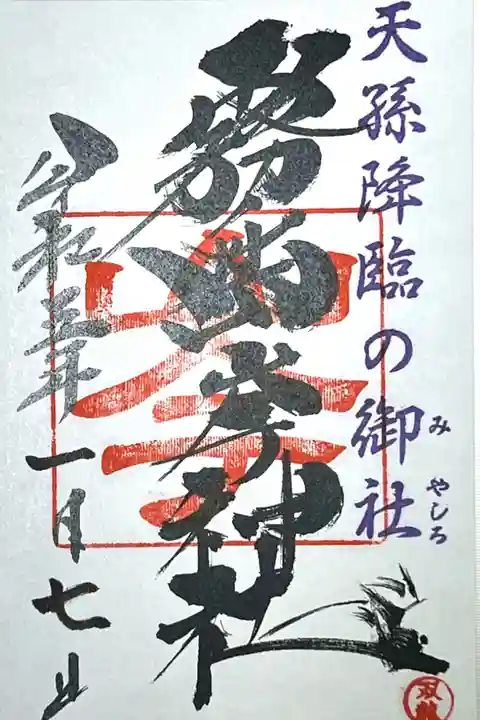 天孫降臨の御社
みやしろ
霧島岑神社
令和年一月七日